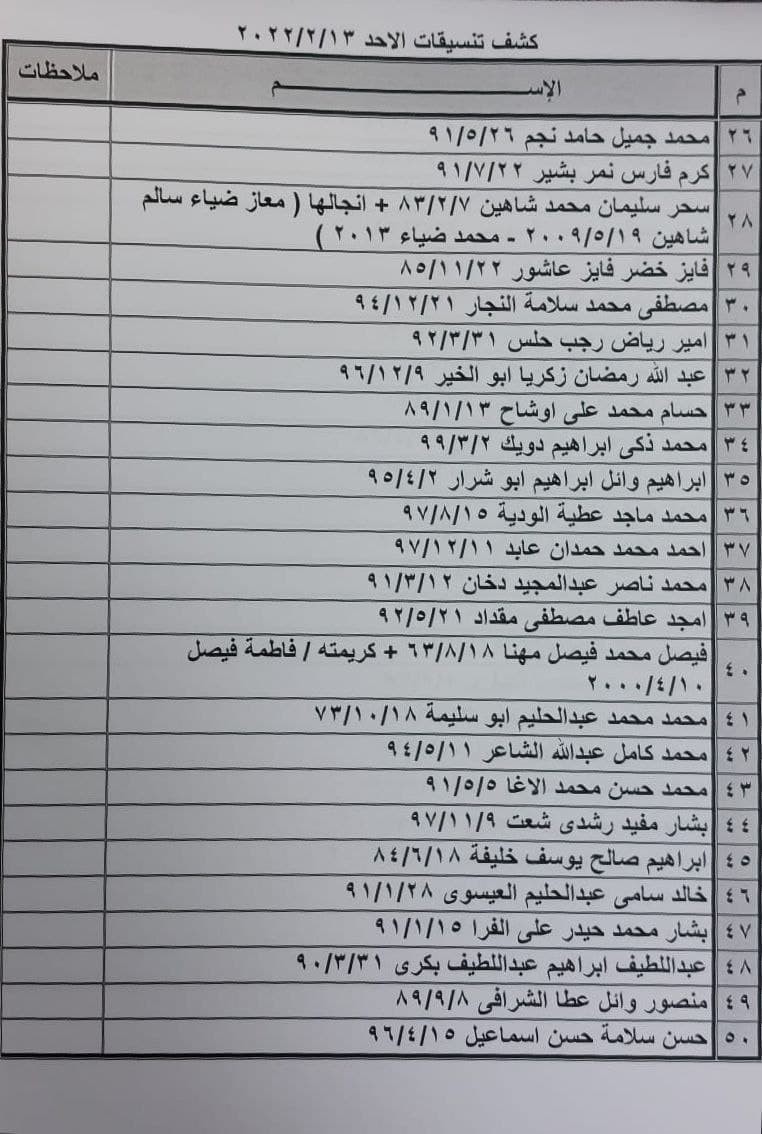 كشف تنسيقات الاحد ٢٠٢٢/٢/١٣
م الإســـــــــم ملاحظات
٢٦ محمد جميل حامد نجم ٩١/٥/٢٦
٢٧ كرم فارس نمر بشير ٩١/٧/٢٢
٢٨ سحر سليمان محمد شاهين ٨٣/٢/٧ + انجالها ( معاز ضياء سالم
شاهين ٢٠٠٩/٥/١٩ - محمد ضياء ٢٠١٣ )
٢٩ فايز خضر فايز عاشور ٨٥/١١/٢٢
٣٠ مصطفى محمد سلامة النجار ٩٤/١٢/٢١
٣١ امير رياض رجب حلس ٩٢/٣/٣١
٣٢ عبد الله رمضان زكريا ابو الخير ٩٦/١٢/٩
٣٣ حسام محمد على اوشاح ٨٩/١/١٣
٣٤ محمد ذكى ابراهيم دويك ٩٩/٣/٢
٣٥ ابراهيم وائل ابراهيم ابو شرار ٩٥/٤/٢
٣٦ محمد ماجد عطية الودية ٩٧/٨/١٥
٣٧ احمد محمد حمدان عابد ٩٧/١٢/١١
٣٨ محمد ناصر عبدالمجيد دخان ٩١/٣/١٢
٣٩ امجد عاطف مصطفى مقداد ٩٢/٥/٢١
٤٠ فيصل محمد فيصل مهنا ٦٣/٨/١٨ + كريمته / فاطمة فيصل
٢٠٠٠/٤/١٠
٤١ محمد محمد عبدالحليم ابو سليمة ٧٣/١٠/١٨
٤٢ محمد كامل عبدالله الشاعر ٩٤/٥/١١
٤٣ محمد حسن محمد الاغا ٩١/٥/٥
٤٤ بشار مفيد رشدى شعت ٩٧/١١/٩
٤٥ ابراهيم صالح يوسف خليفة ٨٤/٦/١٨
٤٦ خالد سامى عبدالحليم العيسوى ٩١/١/٢٨
٤٧ بشار محمد حيدر على الفرا ٩١/١/١٥
٤٨ عبداللطيف ابراهيم عبداللطيف بكرى ٩٠/٣/٣١
٤٩ منصور وائل عطا الشرافى ٨٩/٩/٨
٥٠ حسن سلامة حسن اسماعيل ٩٦/٤/١٥